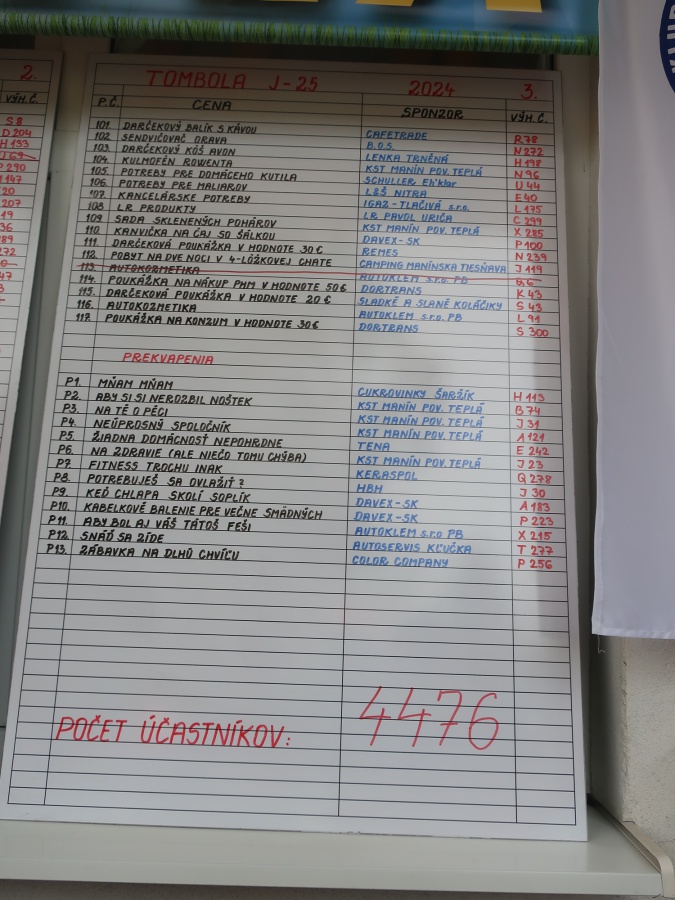 2.
VÝH.Č.
S 8
D 204
H 133
290
147
20
207
19
36
189
272
47
3
TOMBOLA J-25 2024 3.
P.Č. CENA SPONZOR VÝH.Č.
101. DARČEKOVÝ BALÍK S KÁVOU CAFETRADE R78
102. SENDVIČOVAČ ORAVA B.O.S. N 272
103. DARČEKOVÝ KÔŠ AVON LENKA TRNĚNÁ H 198
104. KULMOFÉN ROWENTA KST MANÍN POV. TEPLÁ N 96
105. POTREBY PRE DOMÁCEHO KUTILA SCHULLER Eh'klar U 44
106. POTREBY PRE MALIAROV L&Š NITRA E 40
107. KANCELÁRSKE POTREBY IGAZ-TLAČIVÁ s.r.o. L 175
108. LR PRODUKTY LR PAVOL URIČA C 299
109. SADA SKLENENÝCH POHÁROV KST MANÍN POV. TEPLÁ X 285
110. KANVIČKA NA ČAJ SO ŠÁLKOU DAVEX-SK P 100
111. DARČEKOVÁ POUKÁŽKA V HODNOTE 30€ REMES N 239
112. POBYT NA DVE NOCI V 4-LÔŽKOVEJ CHATE CAMPING MANÍNSKA TIESŇAVA J 119
113. AUTOKOZMETIKA AUTOKLEM s.r.o. PB
114. POUKÁŽKA NA NÁKUP PHM V HODNOTE 50€ DORTRANS K 43
115. DARČEKOVÁ POUKÁŽKA V HODNOTE 20€ SLADKÉ A SLANÉ KOLÁČIKY S 43
116. AUTOKOZMETIKA AUTOKLEM s.r.o. PB L 91
117. POUKÁŽKA NA KONZUM V HODNOTE 30€ DORTRANS S 300
PREKVAPENIA
P1. MŇAM MŇAM CUKROVINKY ŠARŽÍK H 113
P2. ABY SI SI NEROZBIL NOŠTEK KST MANÍN POV. TEPLÁ B 74
P3. NA TÉ O PÉCI KST MANÍN POV. TEPLÁ J 31
P4. NEÚPROSNÝ SPOLOČNÍK KST MANÍN POV. TEPLÁ A 121
P5. ŽIADNA DOMÁCNOSŤ NEPOHRDNE TENA E 242
P6. NA ZDRAVIE (ALE NIEČO TOMU CHÝBA) KST MANÍN POV. TEPLÁ J 23
P7. FITNESS TROCHU INAK KERASPOL Q 278
P8. POTREBUJEŠ SA OVLAŽIŤ? HBH J 30
P9. KEĎ CHLAPA SKOLÍ SOPLÍK DAVEX-SK A 183
P10. KABELKOVÉ BALENIE PRE VEČNE SMÄDNÝCH DAVEX-SK P 223
P11. ABY BOL AJ VÁŠ TÁTOŠ FEŠI AUTOKLEM s.r.o PB X 215
P12. SNÁĎ SA ZÍDE AUTOSERVIS KĽUČKA T 277
P13. ZÁBAVKA NA DLHÚ CHVÍĽU COLOR COMPANY P 256
POČET ÚČASTNÍKOV: 4476